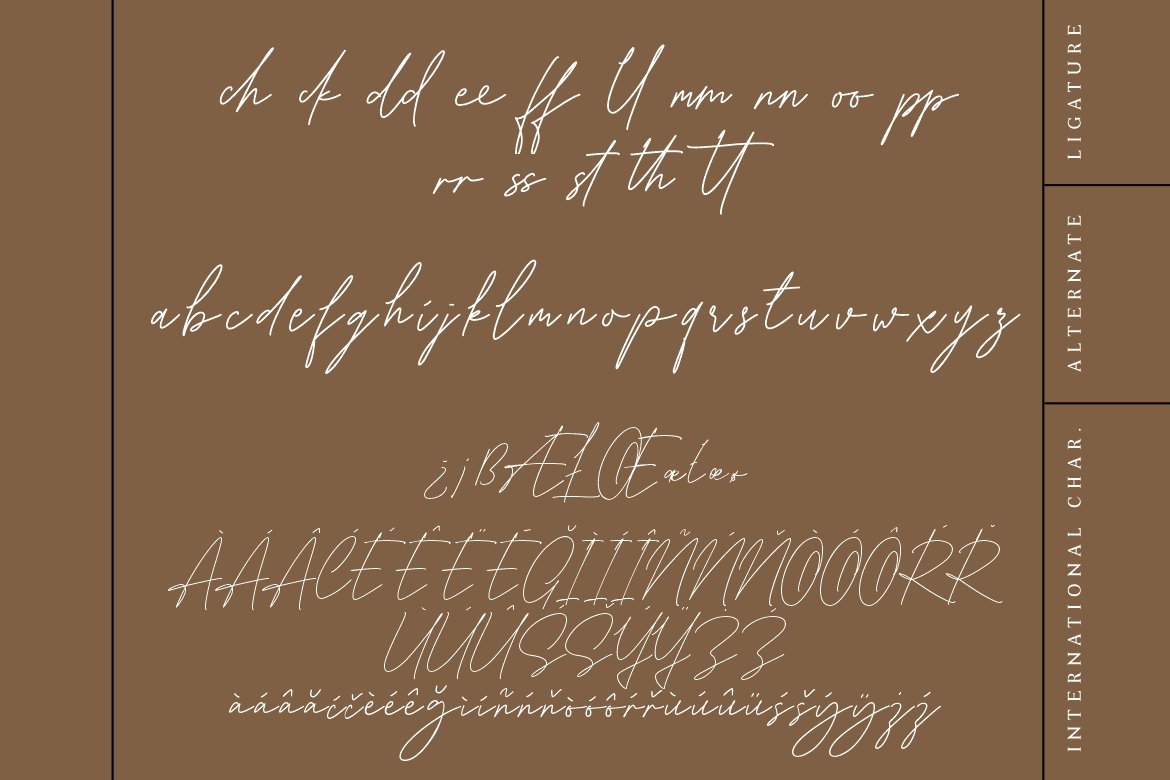 ch ck dd ee ff ll mm nn oo pp
rr ss st th tt
LIGATURE
abcdefghijklmnopqrstuvwxyz
ALTERNATE
¿¡ßÆŁŒæłœø
ÀÁÂĆÈÉÊËĞÌÍÎÑŃŇÒÓÔŔŘ
ÙÚÛŚŠÝŸŻŹ
àáâăćčèéêğìíñńňòóôŕřùúûüśšýÿżź
INTERNATIONAL CHAR.